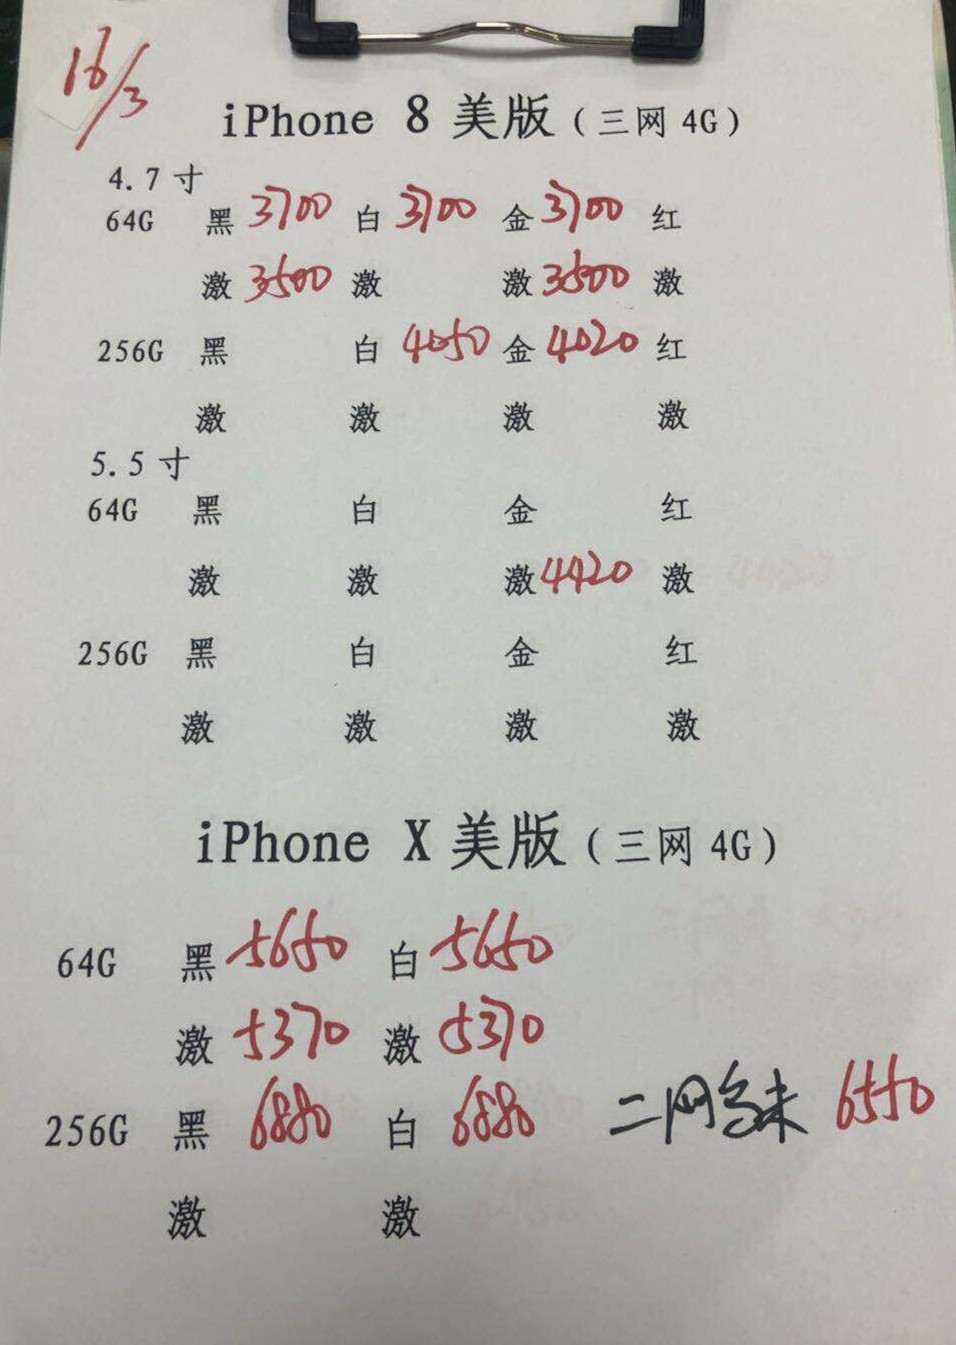 16/3
iPhone 8 美版(三网4G)
4.7寸
64G 黑 3700 白 3700 金 3700 红
激 3500 激 激 3500 激
256G 黑 白 4050 金 4020 红
激 激 激 激
5.5寸
64G 黑 白 金 红
激 激 激 4420 激
256G 黑 白 金 红
激 激 激 激
iPhone X 美版(三网4G)
64G 黑 5650 白 5650
激 5370 激 5370
256G 黑 6880 白 6880 二网 未 6550
激 激